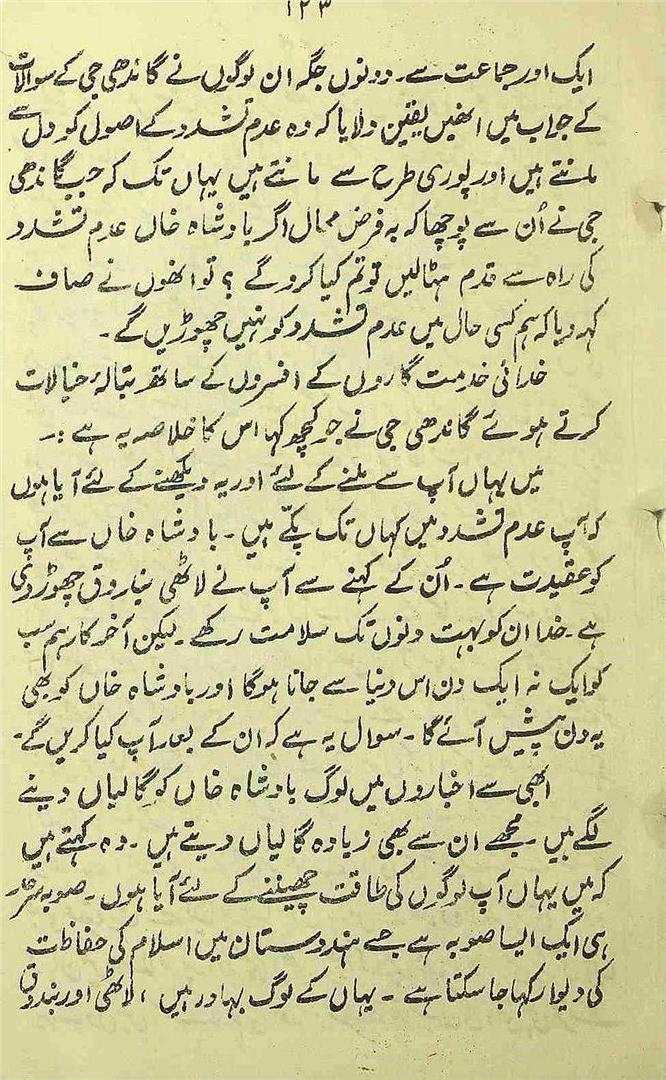 ۱۲۳
ایک اور جماعت سے۔ دونوں جگہ ان لوگوں نے گاندھی جی کے سوالات
کے جواب میں انھیں یقین دلایا کہ وہ عدم تشدد کے اصول کو دل سے
مانتے ہیں اور پوری طرح سے مانتے ہیں یہاں تک کہ جب گاندھی
جی نے اُن سے پوچھا کہ بہ فرض محال اگر بادشاہ خاں عدم تشدد
کی راہ سے قدم ہٹالیں تو تم کیا کرو گے ؟ تو انھوں نے صاف
کہہ دیا کہ ہم کسی حال میں عدم تشدد کو نہیں چھوڑیں گے۔
خدائی خدمت گاروں کے افسروں کے ساتھ تبالۂ خیالات
کرتے ہوئے گاندھی جی نے جو کچھ کہا اس کا خلاصہ یہ ہے :۔
میں یہاں آپ سے ملنے کے لئے اور یہ دیکھنے کے لئے آیا ہوں
کہ آپ عدم تشدد میں کہاں تک پکّے ہیں۔ بادشاہ خاں سے آپ
کو عقیدت ہے۔ اُن کے کہنے سے آپ نے لاٹھی بندوق چھوڑ دی
ہے۔ خدا ان کو بہت دنوں تک سلامت رکھے۔ لیکن آخر کار ہم سب
کو ایک نہ ایک دن اس دنیا سے جانا ہوگا اور بادشاہ خاں کو بھی
یہ دن پیش آئے گا۔ سوال یہ ہے کہ ان کے بعد آپ کیا کریں گے۔
ابھی سے اخباروں میں لوگ بادشاہ خاں کو گالیاں دینے
لگے ہیں۔ مجھے ان سے بھی زیادہ گالیاں دیتے ہیں۔ وہ کہتے ہیں
کہ میں یہاں آپ لوگوں کی طاقت چھیننے کے لئے آیا ہوں۔ صوبہ سرحد
ہی ایک ایسا صوبہ ہے جسے ہندوستان میں اسلام کی حفاظت
کی دیوار کہا جا سکتا ہے۔ یہاں کے لوگ بہادر ہیں، لاٹھی اور بندوق